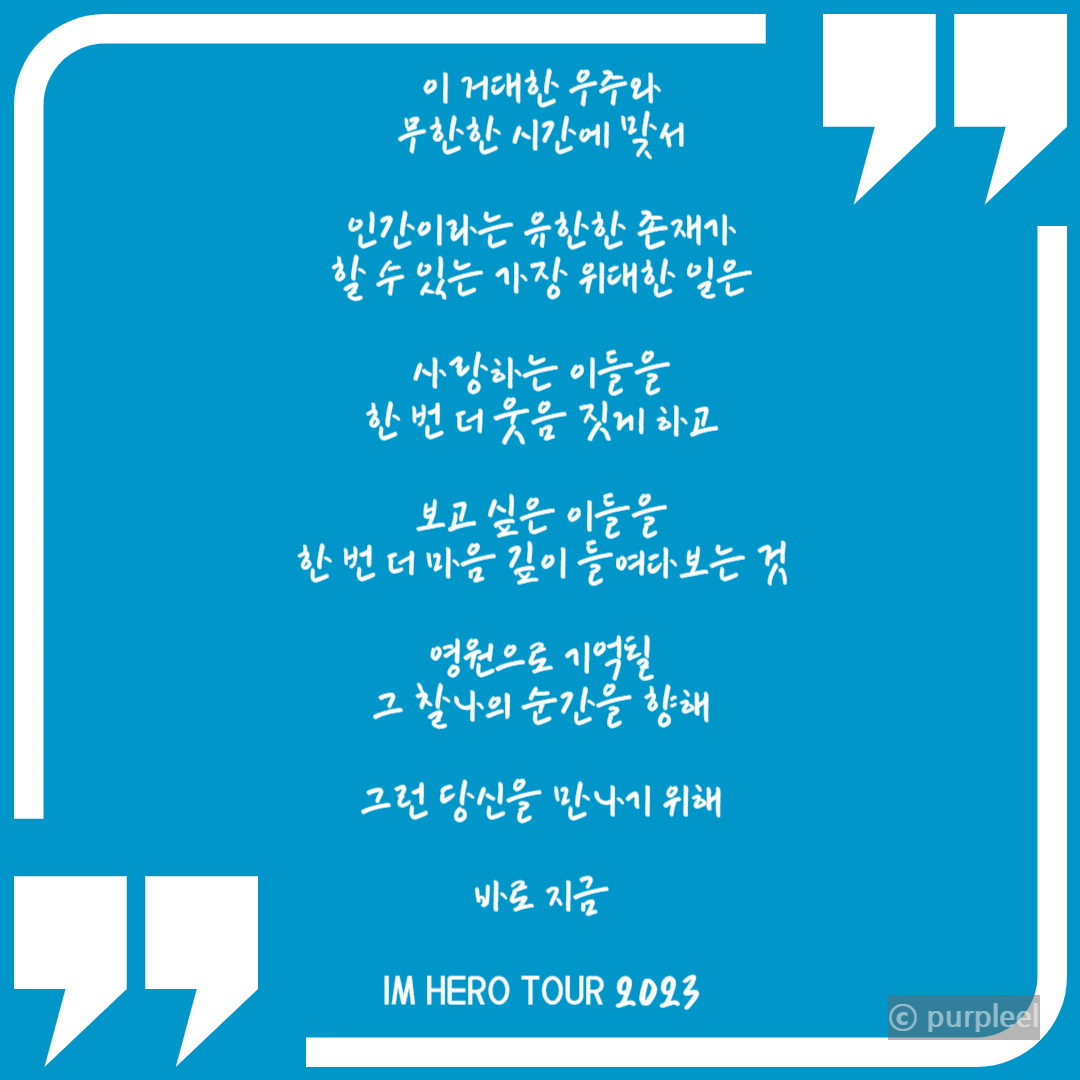 이 거대한 우주와
무한한 시간에 맞서
인간이라는 유한한 존재가
할 수 있는 가장 위대한 일은
사랑하는 이들을
한 번 더 웃음 짓게 하고
보고 싶은 이들을
한 번 더 마음 깊이 들여다보는 것
영원으로 기억될
그 찰나의 순간을 향해
그런 당신을 만나기 위해
바로 지금
IM HERO TOUR 2023
© purpleel